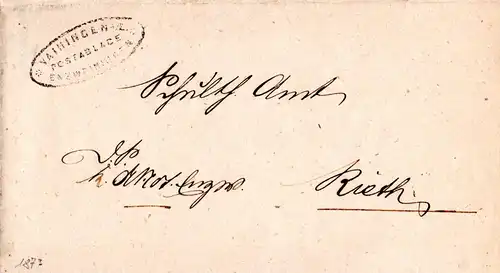 * VAIHINGEN a/E. *
POSTABLAGE
ENZWEIHINGEN
Schulth. Amt
D. S.
Rieth.
1873